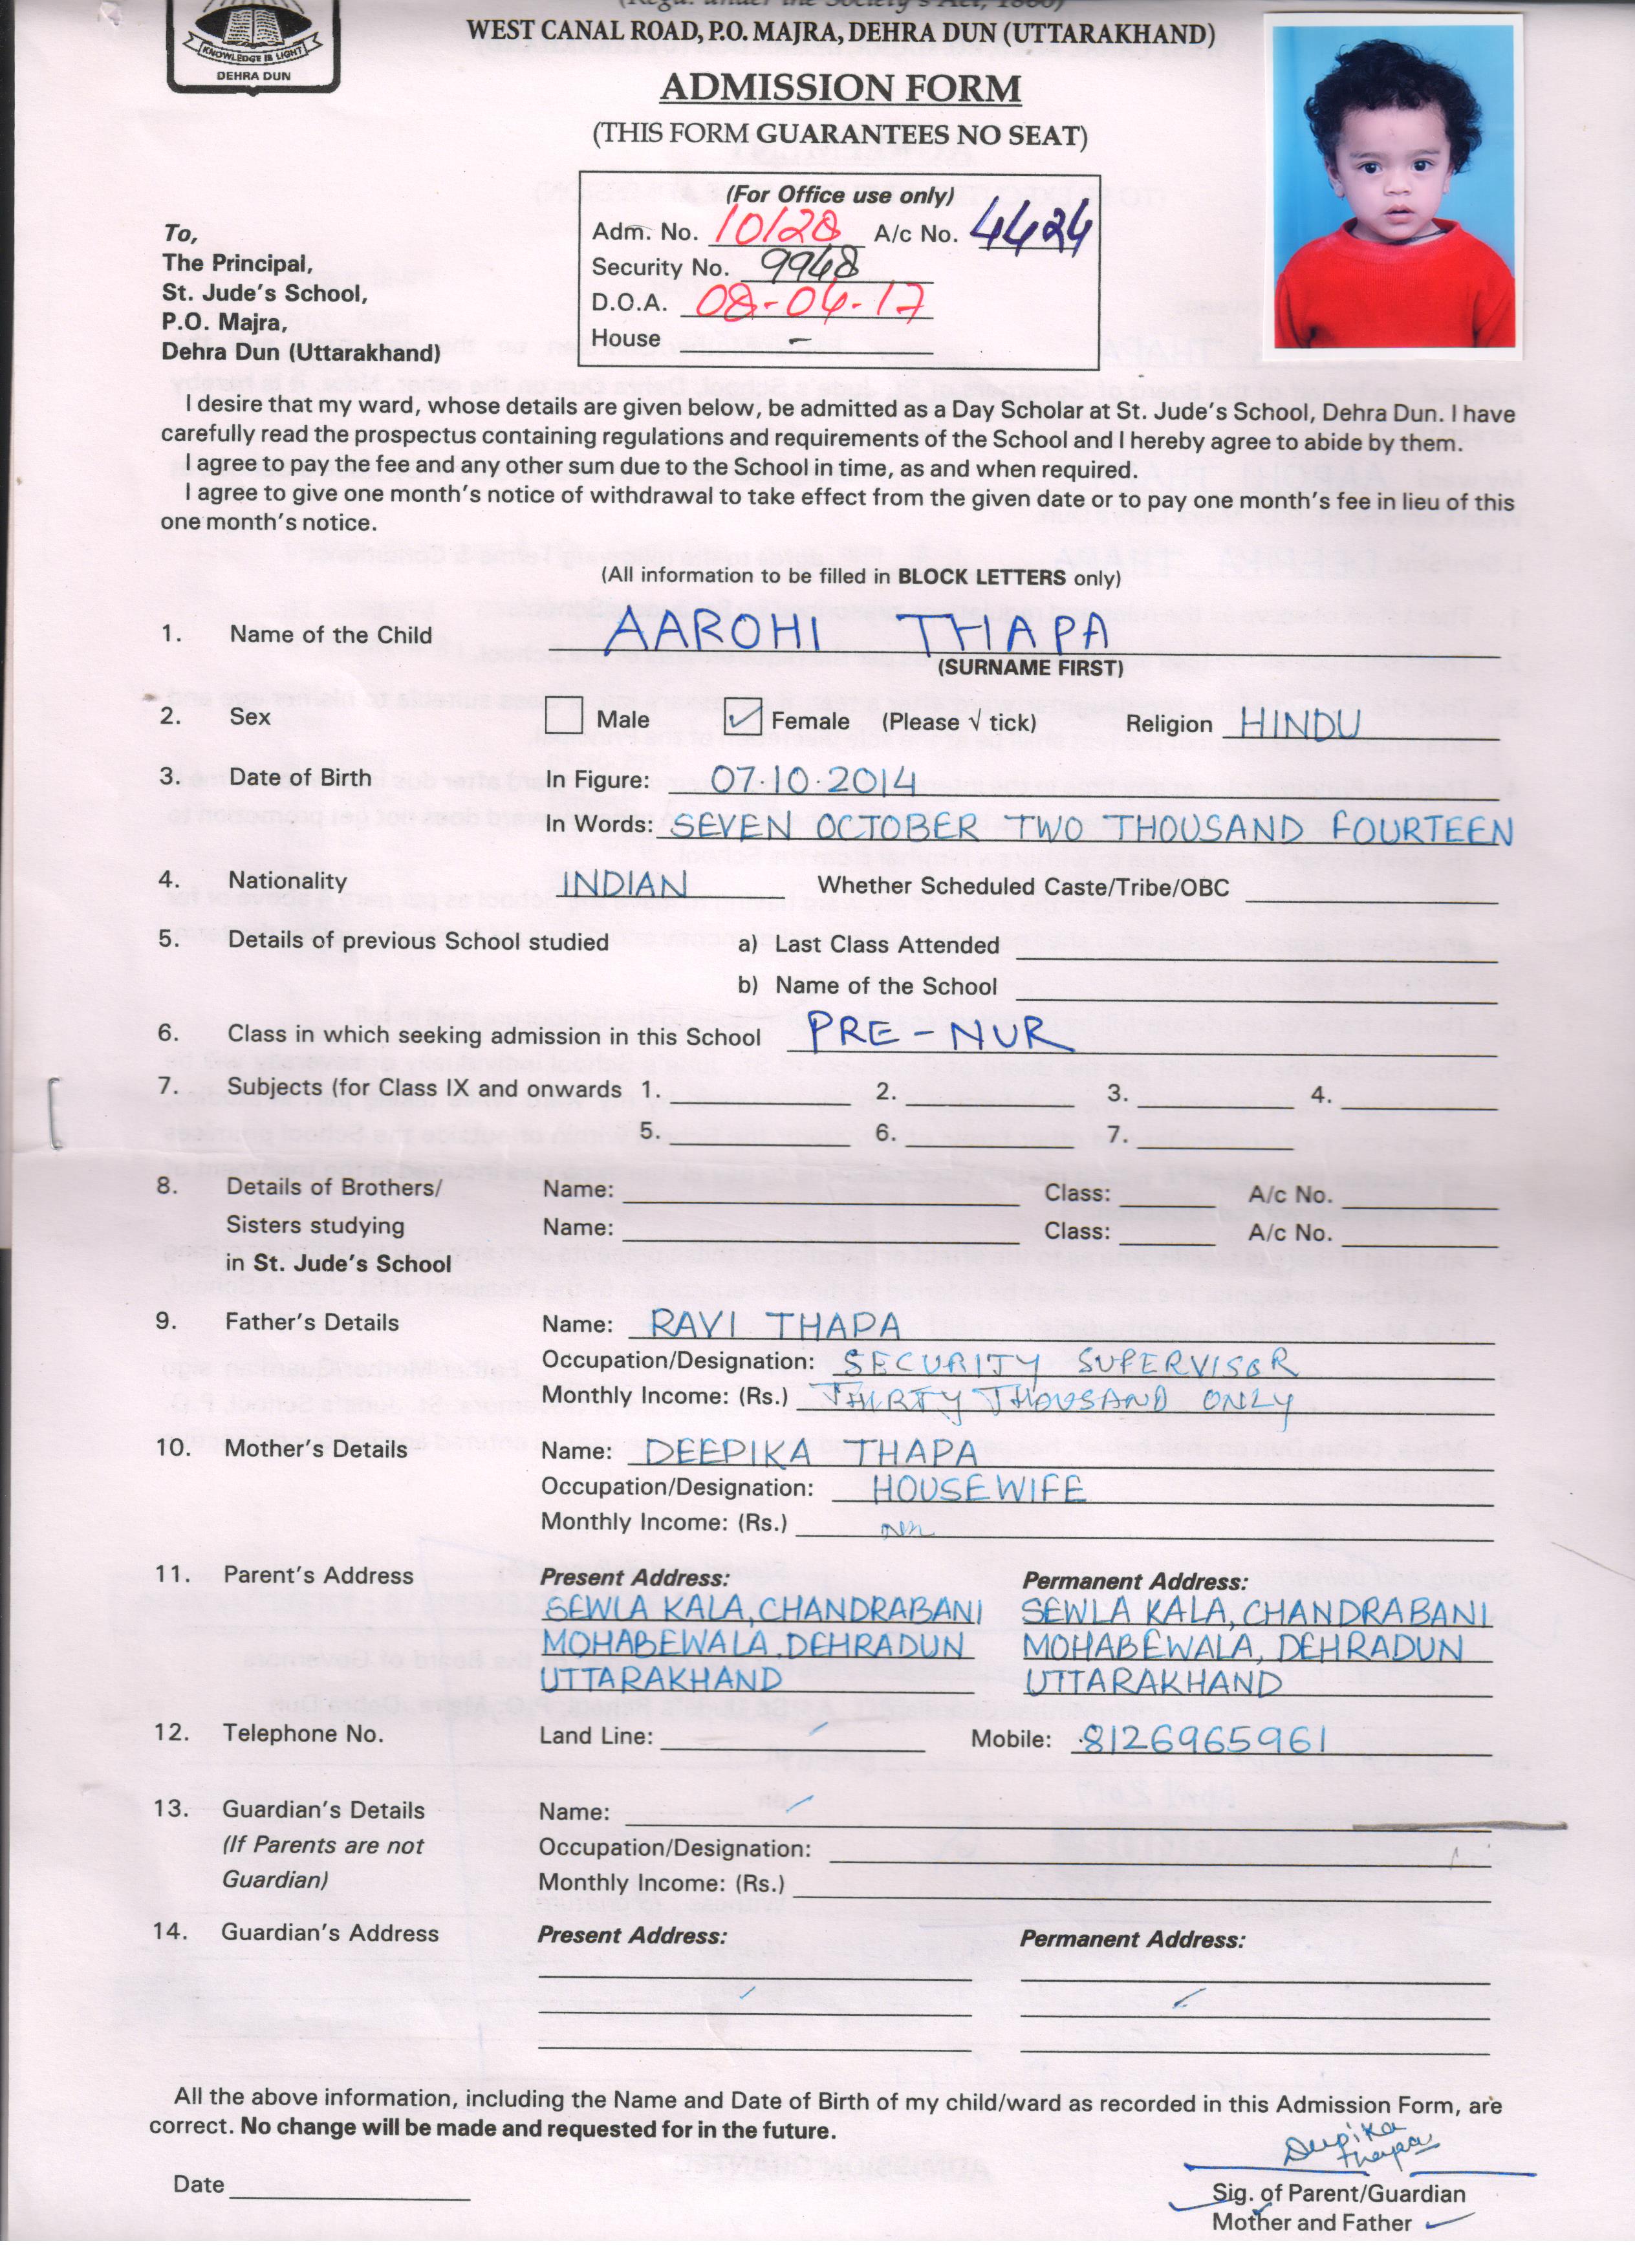 KNOWLEDGE IS LIGHT
DEHRA DUN
(Regd. under the Society's Act, 1860)
WEST CANAL ROAD, P.O. MAJRA, DEHRA DUN (UTTARAKHAND)
ADMISSION FORM
(THIS FORM GUARANTEES NO SEAT)
(For Office use only)
Adm. No. 10128 A/c No. 4424
Security No. 9948
D.O.A. 08-04-17
House -
To,
The Principal,
St. Jude's School,
P.O. Majra,
Dehra Dun (Uttarakhand)
I desire that my ward, whose details are given below, be admitted as a Day Scholar at St. Jude's School, Dehra Dun. I have
carefully read the prospectus containing regulations and requirements of the School and I hereby agree to abide by them.
I agree to pay the fee and any other sum due to the School in time, as and when required.
I agree to give one month's notice of withdrawal to take effect from the given date or to pay one month's fee in lieu of this
one month's notice.
(All information to be filled in BLOCK LETTERS only)
1. Name of the Child AAROHI THAPA
(SURNAME FIRST)
2. Sex Male Female (Please √ tick) Religion HINDU
3. Date of Birth In Figure: 07.10.2014
In Words: SEVEN OCTOBER TWO THOUSAND FOURTEEN
4. Nationality INDIAN Whether Scheduled Caste/Tribe/OBC
5. Details of previous School studied a) Last Class Attended
b) Name of the School
6. Class in which seeking admission in this School PRE-NUR
7. Subjects (for Class IX and onwards 1. 2. 3. 4.
5. 6. 7.
8. Details of Brothers/ Name: Class: A/c No.
Sisters studying Name: Class: A/c No.
in St. Jude's School
9. Father's Details Name: RAVI THAPA
Occupation/Designation: SECURITY SUPERVISOR
Monthly Income: (Rs.) THIRTY THOUSAND ONLY
10. Mother's Details Name: DEEPIKA THAPA
Occupation/Designation: HOUSEWIFE
Monthly Income: (Rs.)
11. Parent's Address Present Address: Permanent Address:
SEWLA KALA, CHANDRABANI SEWLA KALA, CHANDRABANI
MOHABEWALA, DEHRADUN MOHABEWALA, DEHRADUN
UTTARAKHAND UTTARAKHAND
12. Telephone No. Land Line: Mobile: 8126965961
13. Guardian's Details Name:
(If Parents are not Occupation/Designation:
Guardian) Monthly Income: (Rs.)
14. Guardian's Address Present Address: Permanent Address:
All the above information, including the Name and Date of Birth of my child/ward as recorded in this Admission Form, are
correct. No change will be made and requested for in the future.
Deepika
Thapa
Date
Sig. of Parent/Guardian
Mother and Father